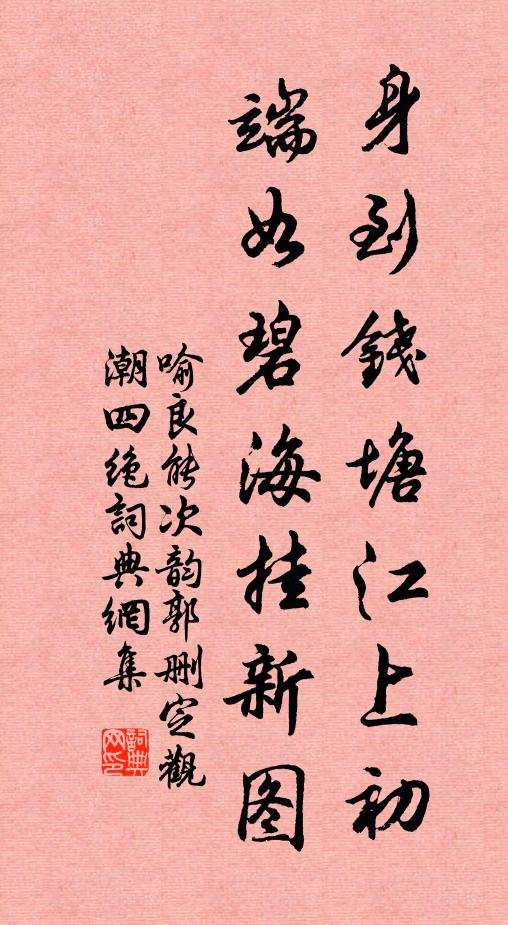 身到錢塘江上初
端如碧海挂新图
喻良能次韵郭删定觀
潮四绝詞典網集
詞典网印